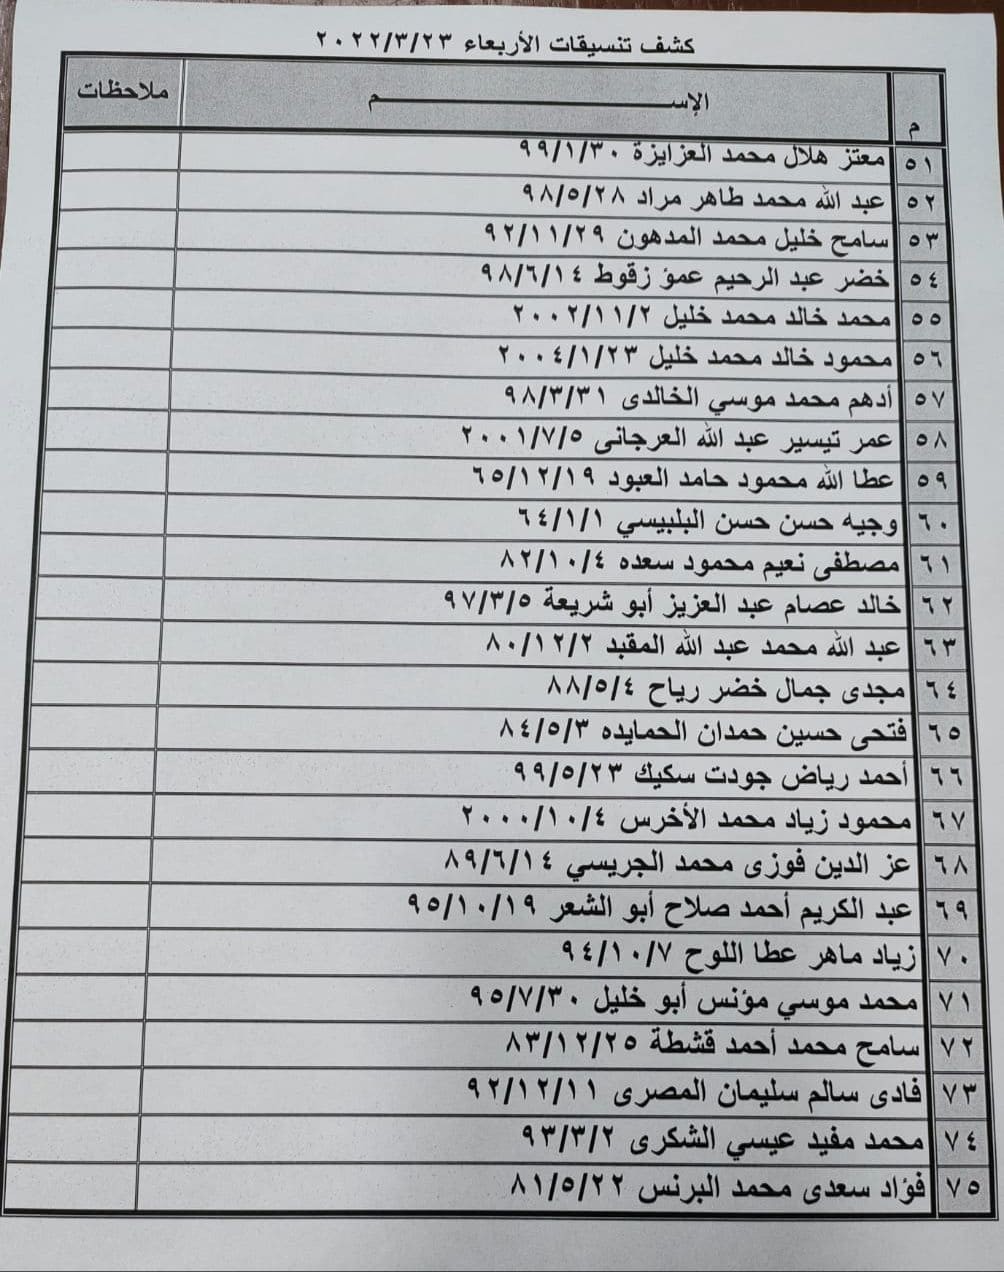 كشف تنسيقات الأربعاء ٢٠٢٢/٣/٢٣
م الإســـــــــــــــــــــم ملاحظات
٥١ معتز هلال محمد العزايزة ٩٩/١/٣٠
٥٢ عبد الله محمد طاهر مراد ٩٨/٥/٢٨
٥٣ سامح خليل محمد المدهون ٩٢/١١/٢٩
٥٤ خضر عبد الرحيم عمؤ زقوط ٩٨/٦/١٤
٥٥ محمد خالد محمد خليل ٢٠٠٢/١١/٢
٥٦ محمود خالد محمد خليل ٢٠٠٤/١/٢٣
٥٧ أدهم محمد موسي الخالدى ٩٨/٣/٣١
٥٨ عمر تيسير عبد الله العرجانى ٢٠٠١/٧/٥
٥٩ عطا الله محمود حامد العبود ٦٥/١٢/١٩
٦٠ وجيه حسن حسن البلبيسي ٦٤/١/١
٦١ مصطفى نعيم محمود سعده ٨٢/١٠/٤
٦٢ خالد عصام عبد العزيز أبو شريعة ٩٧/٣/٥
٦٣ عبد الله محمد عبد الله المقبد ٨٠/١٢/٢
٦٤ مجدى جمال خضر رياح ٨٨/٥/٤
٦٥ فتحى حسين حمدان الحمايده ٨٤/٥/٣
٦٦ أحمد رياض جودت سكيك ٩٩/٥/٢٣
٦٧ محمود زياد محمد الأخرس ٢٠٠٠/١٠/٤
٦٨ عز الدين فوزى محمد الجريسي ٨٩/٦/١٤
٦٩ عبد الكريم أحمد صلاح أبو الشعر ٩٥/١٠/١٩
٧٠ زياد ماهر عطا اللوح ٩٤/١٠/٧
٧١ محمد موسي مؤنس أبو خليل ٩٥/٧/٣٠
٧٢ سامح محمد أحمد قشطة ٨٣/١٢/٢٥
٧٣ فادى سالم سليمان المصرى ٩٢/١٢/١١
٧٤ محمد مفيد عيسي الشكرى ٩٣/٣/٢
٧٥ فؤاد سعدى محمد البرنس ٨١/٥/٢٢